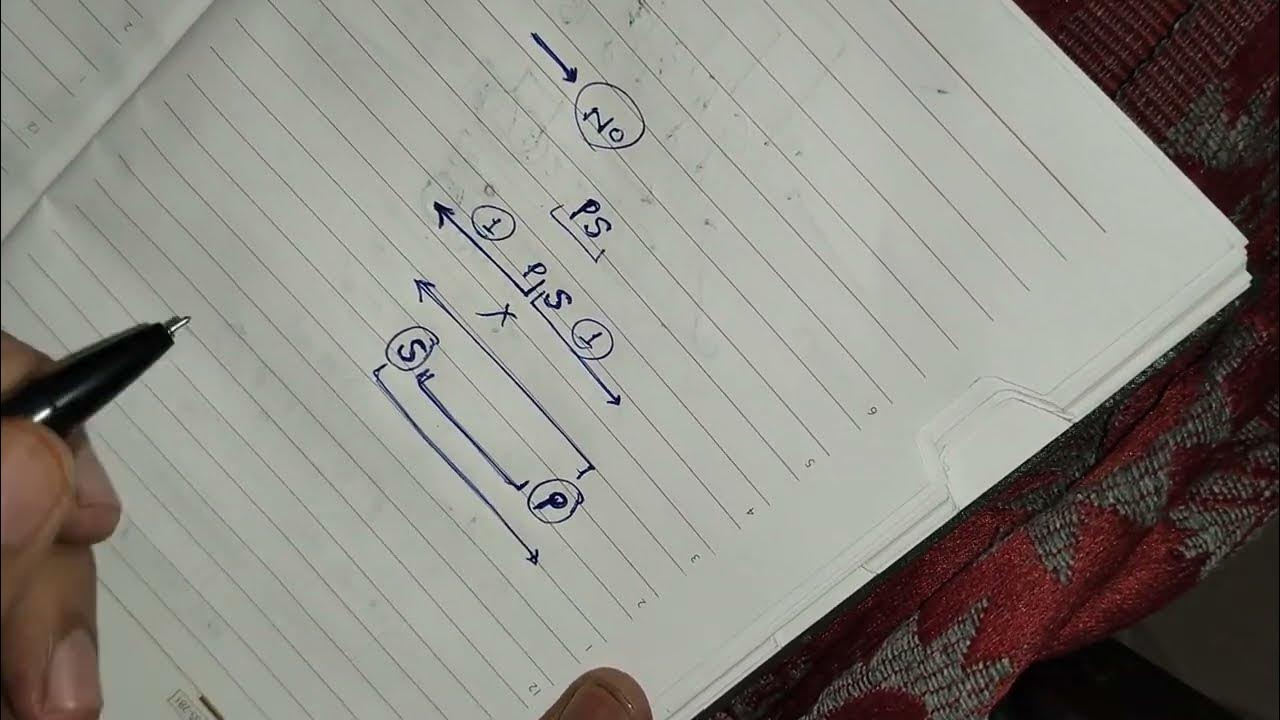 No
PS
1
P S 1
X
S
P
12
1
2
3
4
5
6
12
2